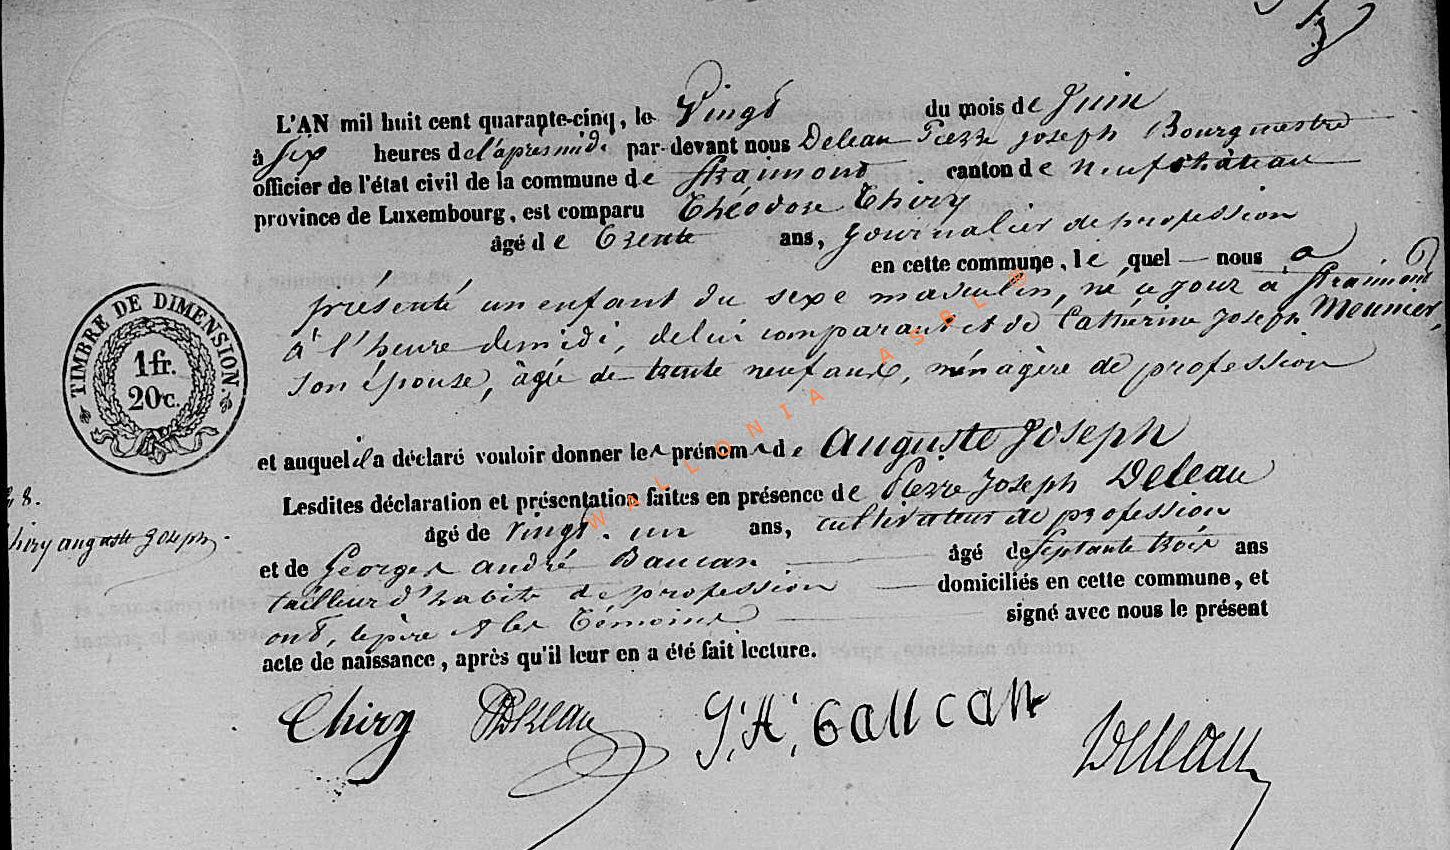 L'AN mil huit cent quarante-cinq, le Vingt du mois de Juin
à Six heures de l'après midi par-devant nous Deleau Pierre Joseph Bourgmestre
officier de l'état civil de la commune de Straimont canton de neufchâteau
province de Luxembourg, est comparu Théodore Thiry
âgé de Trente ans, journalier de profession
en cette commune, le quel nous a
présenté un enfant du sexe masculin, né ce jour à Straimont
à l'heure de midi, de lui comparant et de Catherine Joseph Meunier,
son épouse, âgée de trente neuf ans, ménagère de profession
TIMBRE DE DIMENSION.
1 fr.
20 c.
et auquel il a déclaré vouloir donner les prénoms de Auguste Joseph
Lesdites déclaration et présentation faites en présence de Pierre Joseph Deleau
âgé de vingt-un ans, cultivateur de profession
et de Georges andré Baucan âgé de septante trois ans
tailleur d'habits de profession domiciliés en cette commune, et
ont, le père et les Témoins signé avec nous le présent
acte de naissance, après qu'il leur en a été fait lecture.
48.
Thiry auguste Joseph.
Thiry PJDeleau G, A, bauccan Deleau
WALLONIA ASBL ©